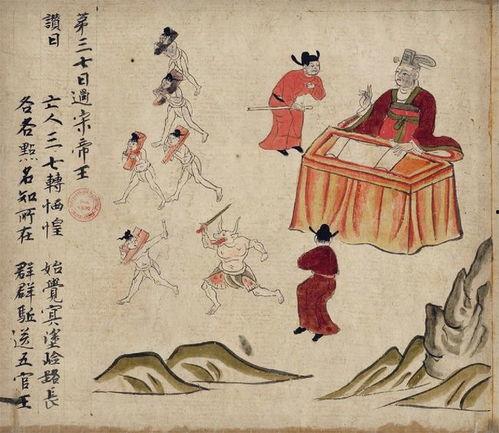 第三七日過宋帝王
讚曰 亡人三七轉恓惶 始覺冥塗嶮路長
各各點名知所在 群群駈送五官王